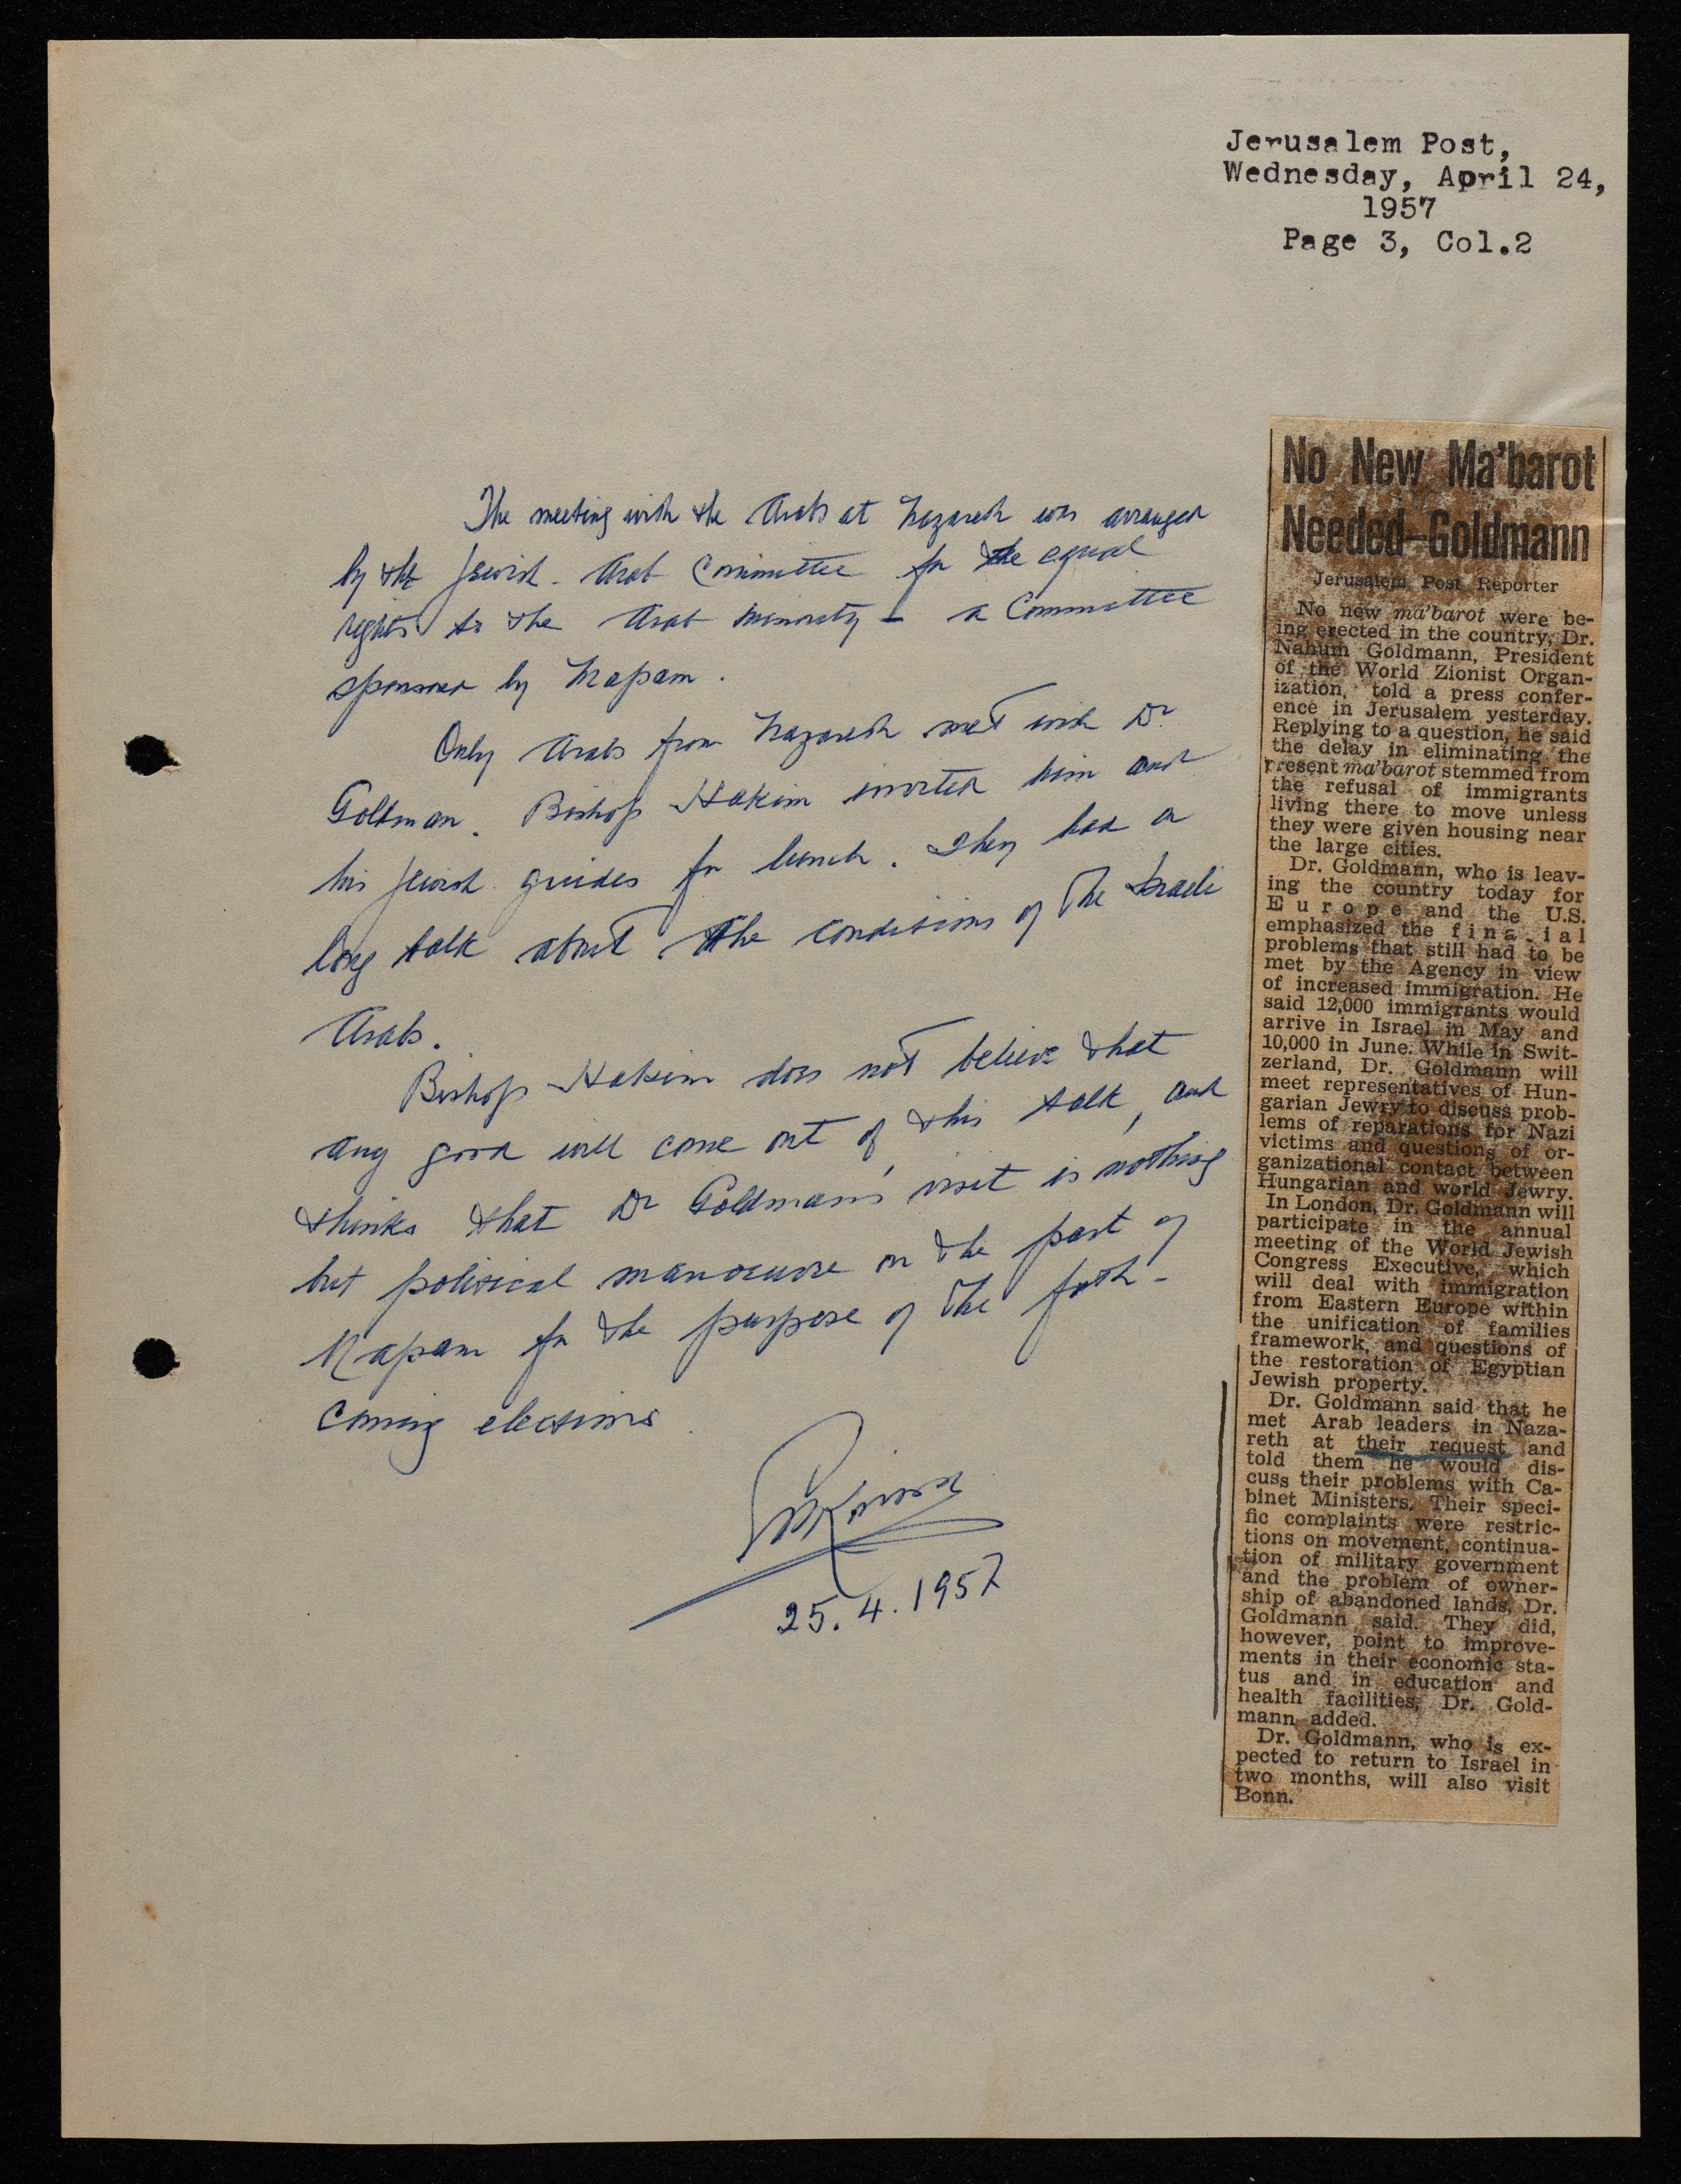 Jerusalem Post,
Wednesday, April 24,
1957
Page 3, Col.2
The meeting with the Arabs at Nazareth was arranged
by the Jewish-Arab Committee for the equal
rights to the Arab minority - a Committee
sponsored by Mapam.
Only Arabs from Nazareth met with Dr
Goldman. Bishop Hakim invited him and
his Jewish guides for lunch. They had a
long talk about the conditions of the Israeli
Arabs.
Bishop Hakim does not believe that
any good will come out of this talk, and
thinks that Dr Goldman's visit is nothing
but political manoeuvre on the part of
Mapam for the purpose of the forth-
coming elections.
25.4.1957
No New Ma'barot
Needed—Goldmann
Jerusalem Post Reporter
No new ma'barot were be-
ing erected in the country, Dr.
Nahum Goldmann, President
of the World Zionist Organ-
ization, told a press confer-
ence in Jerusalem yesterday.
Replying to a question, he said
the delay in eliminating the
present ma'barot stemmed from
the refusal of immigrants
living there to move unless
they were given housing near
the large cities.
Dr. Goldmann, who is leav-
ing the country today for
Europe and the U.S.
emphasized the financial
problems that still had to be
met by the Agency in view
of increased immigration. He
said 12,000 immigrants would
arrive in Israel in May and
10,000 in June. While in Swit-
zerland, Dr. Goldmann will
meet representatives of Hun-
garian Jewry to discuss prob-
lems of reparations for Nazi
victims and questions of or-
ganizational contact between
Hungarian and world Jewry.
In London, Dr. Goldmann will
participate in the annual
meeting of the World Jewish
Congress Executive, which
will deal with immigration
from Eastern Europe within
the unification of families
framework, and questions of
the restoration of Egyptian
Jewish property.
Dr. Goldmann said that he
met Arab leaders in Naza-
reth at their request and
told them he would dis-
cuss their problems with Ca-
binet Ministers. Their speci-
fic complaints were restric-
tions on movement, continua-
tion of military government
and the problem of owner-
ship of abandoned lands, Dr.
Goldmann said. They did,
however, point to improve-
ments in their economic sta-
tus and in education and
health facilities, Dr. Gold-
mann added.
Dr. Goldmann, who is ex-
pected to return to Israel in
two months, will also visit
Bonn.